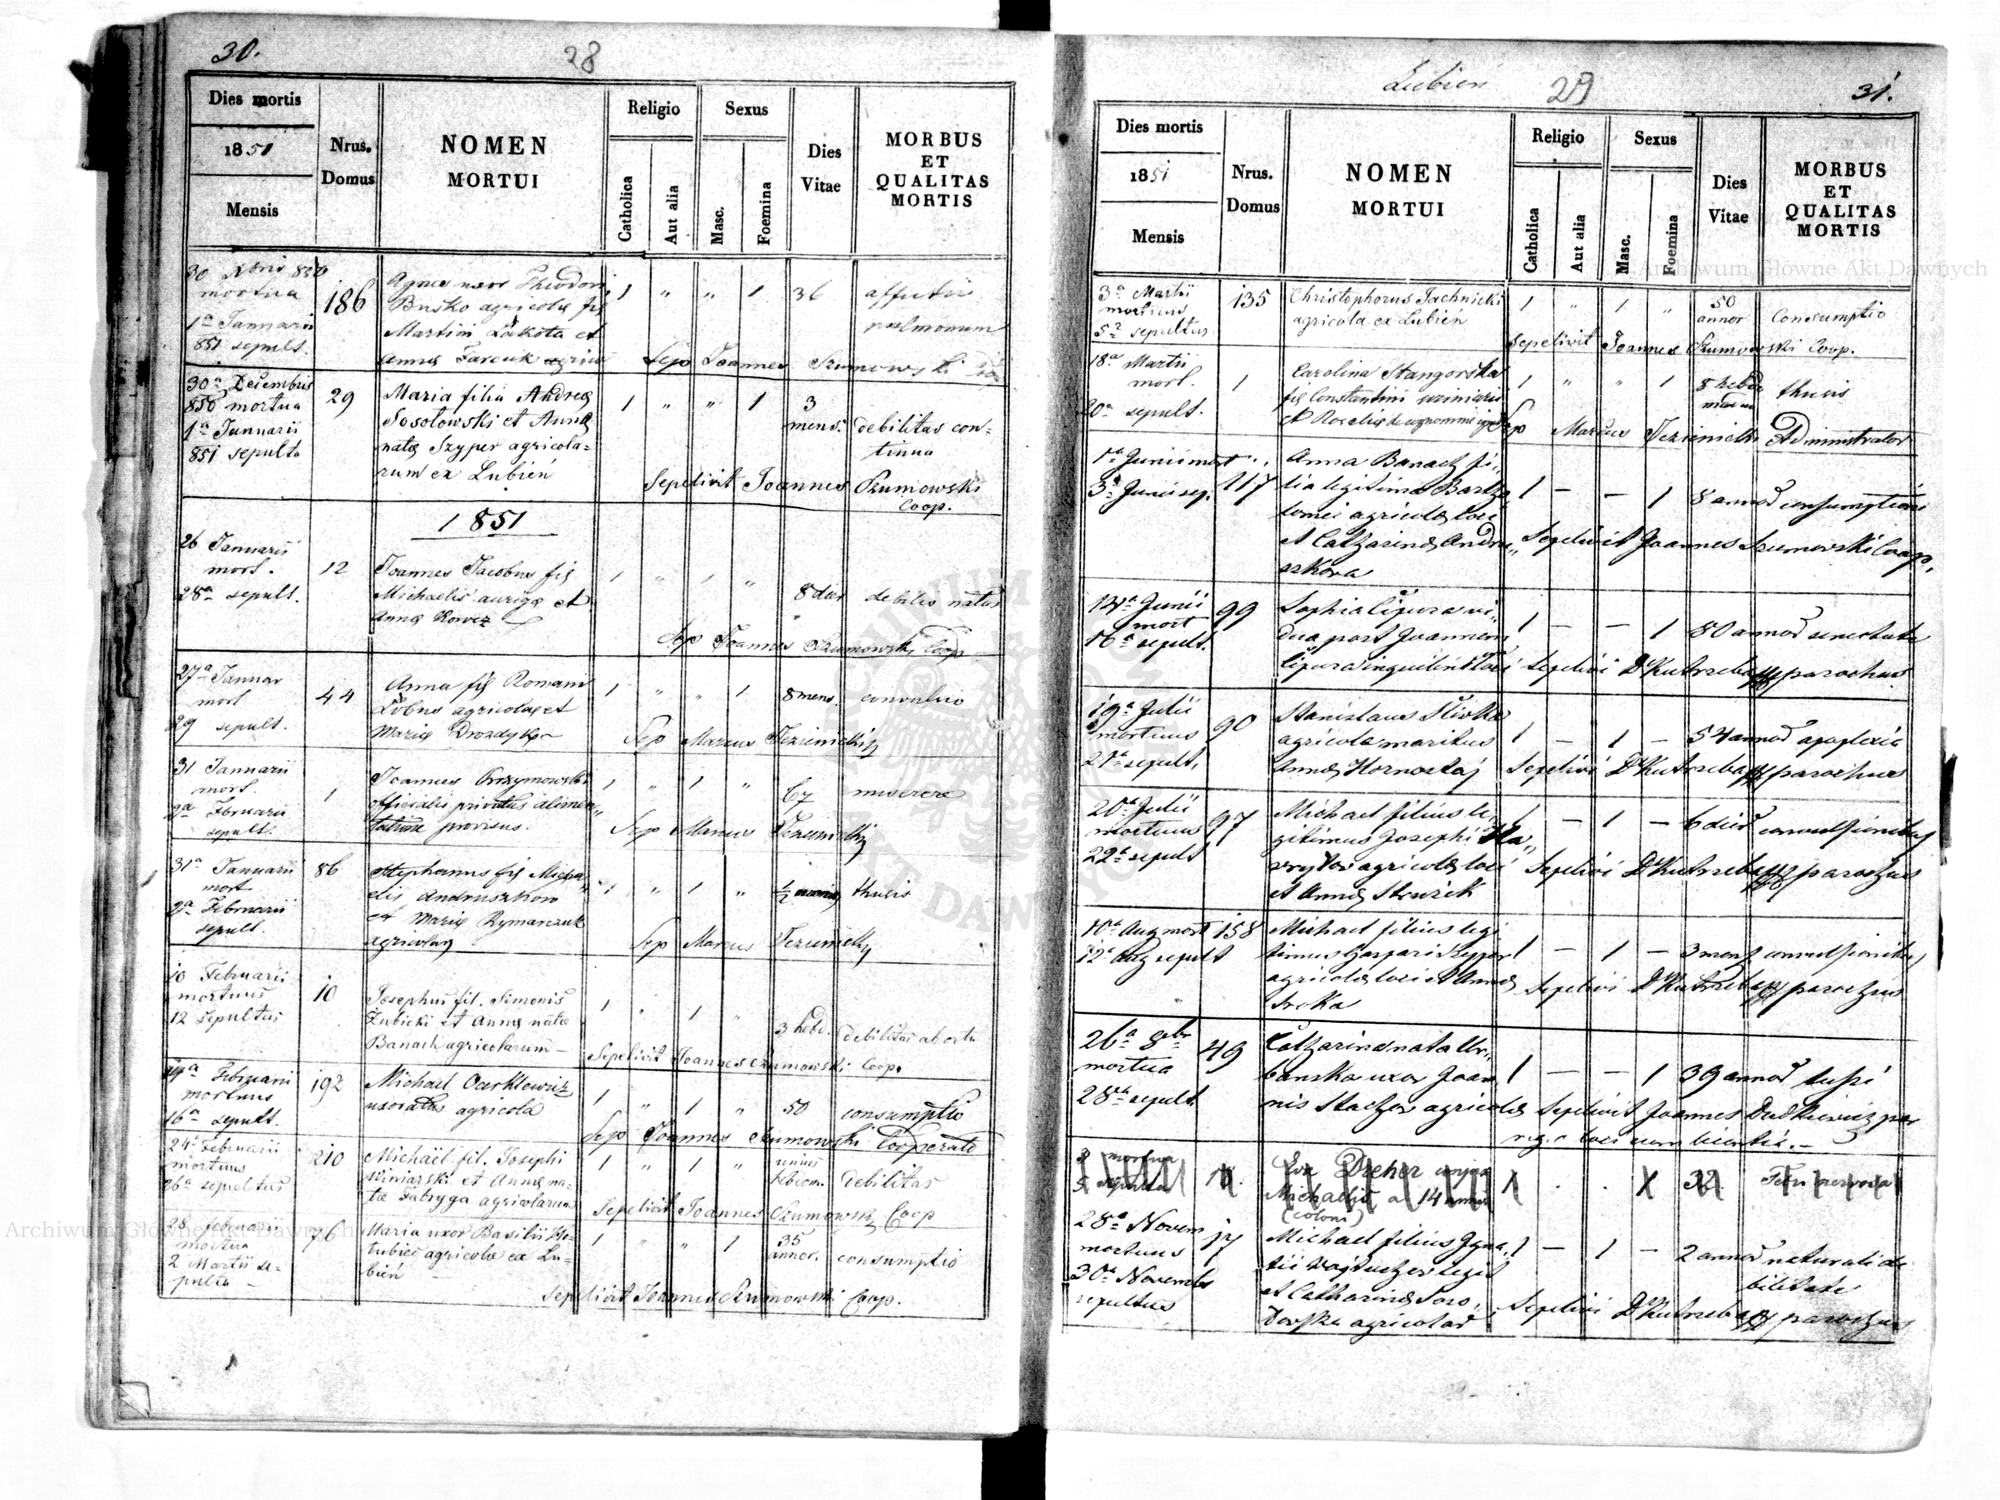 30.
28
Dies mortis
1851
Mensis
Nrus.
Domus
NOMEN
MORTUI
Religio
Catholica
Aut alia
Sexus
Masc.
Foemina
Dies
Vitae
MORBUS
ET
QUALITAS
MORTIS
30 Xbris 850
mortua
1a Januarii
851 sepult.
186
Agnes uxor Theodori
Busko agricolę fil
Martini Lakota et
1 " " 1 36
pulmonum
Sep Joannes Szumowski
30a Decembris
850 mortua
1a Januarii
851 sepulta
29
Maria filia Andreę
Sosolowski et Annę
natę Szyper agricola=
rum ex Lubień
1 " " 1
3
mens.
debilitas con-
tinua
Sepelivit Joannes Szumowski
Coop.
1851
26 Januarii
mort.
28a sepult.
12
Joannes Jacobus fil
Michaelis aurigę et
Annę Rowicz
1 " 1 "
8 dier
debilis natus
Sep Joannes Szumowski Coop
27a Januar
mort
29 sepult.
44
Anna fil Romani
Lobus agricolae et
Marię Drozdyk
1 " " 1
8 mens.
convulsio
Sep Marcus Jezienicki
31 Januarii
mort.
2a Februarii
sepult.
1
Joannes
officialis privatus alimen
provisus.
1 " 1 "
67
miserere
Sep Marcus Jezienicki
31a Januarii
mort
2a Februarii
sepult.
86
Stephanus fil Micha
elis Andruszkow
et Marię Rymarczuk
1 " 1 "
1/2
thusis
Sep Marcus Jezienicki
10 Februarii
mortuus
12 sepultus
10
Josephus fil. Simonis
Zubicki et Annę natę
Banach agricolarum
1 " 1 "
3 hebd.
debilitas ab ortu
Sepelivit Joannes Szumowski Coop.
14a Februarii
mortuus
16a sepult.
192
Michael
uxoratus agricola
1 " 1 "
50
consumptio
Sep Joannes Szumowski Cooperator
24a Februarii
mortuus
26a sepultus
210
Michaël fil. Josephi
Winiarski et Annę na-
tae Fabryga agricolarum
1 " 1 "
unius
hebdom.
debilitas
Sepelivit Joannes Szumowski Coop
28 Februarii
mortua
2 Martii se-
pulta
76
Maria uxor Basilii Ho-
lubiec agricolae ex Lu-
bień
1 " " 1
35
annor.
consumptio
Sepelivit Joannes Szumowski Coop.
Lubień
29
31.
Dies mortis
1851
Mensis
Nrus.
Domus
NOMEN
MORTUI
Religio
Catholica
Aut alia
Sexus
Masc.
Foemina
Dies
Vitae
MORBUS
ET
QUALITAS
MORTIS
3a Martii
mortuus
5a sepultus
135
Christophorus Jachnicki
agricola ex Lubień
1 " 1 "
50
annor
Consumptio
Sepelivit Joannes Szumowski Coop.
18a Martii
mort.
20a sepult.
1
Carolina Stangorska
fil Constantini
et Rosalię de cognomine
1 " " 1
8 hebdo
thusis
Sep Marcus Jezienicki Administrator
1a Junii mort
3a Junii sep.
117
Anna Banach fi-
lia legitima Bartho
lomei agricolę loci
et Catharinę Andru
szkowa
1 — — 1
8 annor
Sepelivit Joannes Szumowski Coop.
14a Junii
mort
16a sepult.
99
Sophia Cipura vi-
dua post Joannem
Cipura inquilin loci
1 — — 1
80 annor senectute
Sepelivi Dr Kutrzeba parochus
19a Julii
mortuus
21a sepult.
90
Stanislaus Sliwka
agricola maritus
Annę Hornostaj
1 — 1 —
54 annor apoplexia
Sepelivi Dr Kutrzeba parochus
20a Julii
mortuus
22a sepult
97
Michael filius le-
gitimus Josephi Ha-
agricolę loci
et Annę
1 — 1 —
6 dier convulsionibus
Sepelivi Dr Kutrzeba parochus
10a Aug mort
12a Aug sepult
158
Michael filius legi
timus Gaspari Szyper
agricolę loci et Annę
Sroka
1 — 1 —
3 mens convulsionibus
Sepelivi Dr Kutrzeba parochus
26a 8bris
mortua
28a sepult.
49
Catharina nata Ur-
banska uxor Joan
nis Stachow agricolę
1 — — 1
39 annor tussi
Sepelivit Joannes
3 mortua
5 sepulta
Eva Dreher
Michaelis a 14
(coloni)
1 . . X 32
28a Novem
mortuus
30a Novembr
sepultus
Michael filius Igna-
legit
et Catharinę Soro-
agricolar
1 — 1 —
2 annor naturali de
bilitate
Sepelivi Dr Kutrzeba parochus
ARCHIWUM GŁÓWNE AKT DAWNYCH
Archiwum Główne Akt Dawnych
Archiwum Główne Akt Dawnych